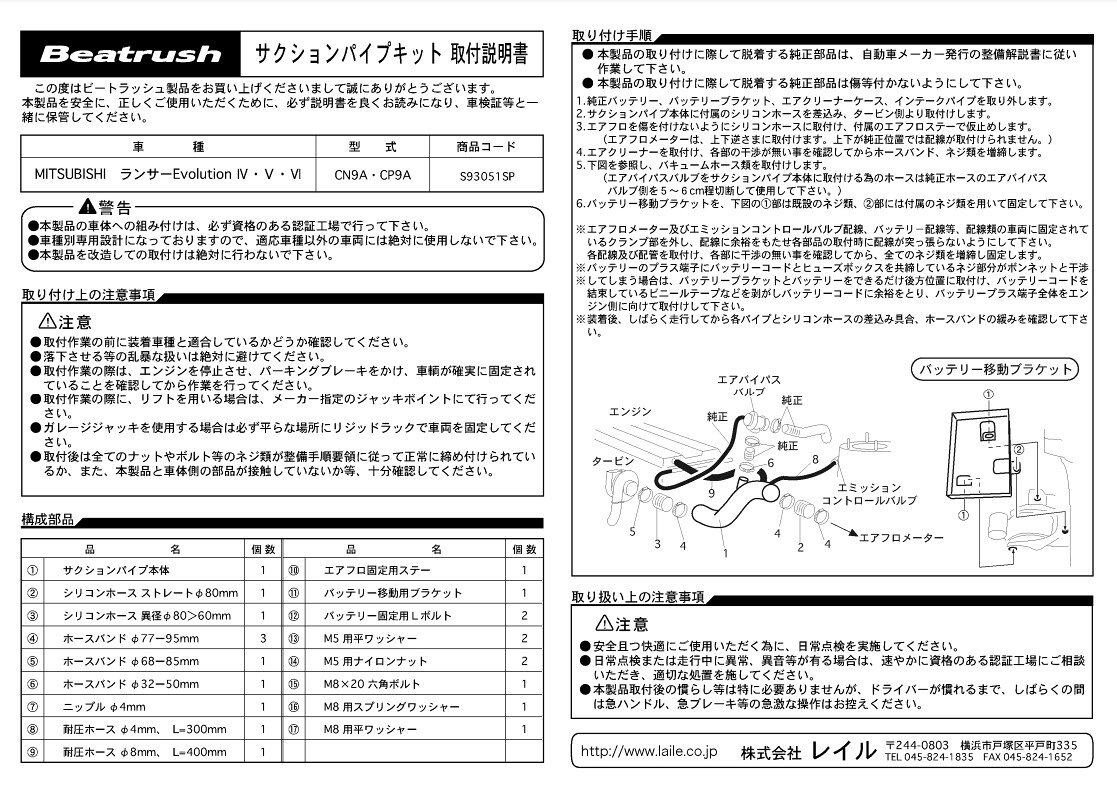 Beatrush サクションパイプキット 取付説明書
この度はビートラッシュ製品をお買い上げくださいまして誠にありがとうございます。
本製品を安全に、正しくご使用いただくために、必ず説明書を良くお読みになり、車検証等と一
緒に保管してください。
車 種 型 式 商品コード
MITSUBISHI ランサーEvolution Ⅳ・Ⅴ・Ⅵ CN9A・CP9A S93051SP
警告
●本製品の車体への組み付けは、必ず資格のある認証工場で行って下さい。
●車種別専用設計になっておりますので、適応車種以外の車両には絶対に使用しないで下さい。
●本製品を改造しての取付けは絶対に行わないで下さい。
取り付け上の注意事項
注意
●取付作業の前に装着車種と適合しているかどうか確認してください。
●落下させる等の乱暴な扱いは絶対に避けてください。
●取付作業の際は、エンジンを停止させ、パーキングブレーキをかけ、車輌が確実に固定され
ていることを確認してから作業を行ってください。
●取付作業の際に、リフトを用いる場合は、メーカー指定のジャッキポイントにて行ってくだ
さい。
●ガレージジャッキを使用する場合は必ず平らな場所にリジッドラックで車両を固定してくだ
さい。
●取付後は全てのナットやボルト等のネジ類が整備手順要領に従って正常に締め付けられてい
るか、また、本製品と車体側の部品が接触していないか等、十分確認してください。
構成部品
品 名 個数 品 名 個数
① サクションパイプ本体 1 ⑩ エアフロ固定用ステー 1
② シリコンホース ストレートφ80mm 1 ⑪ バッテリー移動用ブラケット 1
③ シリコンホース 異径φ80＞60mm 1 ⑫ バッテリー固定用Lボルト 2
④ ホースバンド φ77ー95mm 3 ⑬ M5 用平ワッシャー 2
⑤ ホースバンド φ68ー85mm 1 ⑭ M5 用ナイロンナット 2
⑥ ホースバンド φ32ー50mm 1 ⑮ M8×20 六角ボルト 1
⑦ ニップル φ4mm 1 ⑯ M8 用スプリングワッシャー 1
⑧ 耐圧ホース φ4mm、 L=300mm 1 ⑰ M8 用平ワッシャー 1
⑨ 耐圧ホース φ8mm、 L=400mm 1
取り付け手順
●本製品の取り付けに際して脱着する純正部品は、自動車メーカー発行の整備解説書に従い
作業して下さい。
●本製品の取り付けに際して脱着する純正部品は傷等付かないようにして下さい。
1.純正バッテリー、バッテリーブラケット、エアクリーナーケース、インテークパイプを取り外します。
2.サクションパイプ本体に付属のシリコンホースを差込み、タービン側より取付けします。
3.エアフロを傷を付けないようにシリコンホースに取付け、付属のエアフロステーで仮止めします。
（エアフロメーターは、上下逆さまに取付けます。上下が純正位置では配線が取付けられません。）
4.エアクリーナーを取付け、各部の干渉が無い事を確認してからホースバンド、ネジ類を増締します。
5.下図を参照し、バキュームホース類を取付けします。
（エアバイパスバルブをサクションパイプ本体に取付ける為のホースは純正ホースのエアバイパス
バルブ側を5～6cm程切断して使用して下さい。）
6.バッテリー移動ブラケットを、下図の①部は既設のネジ類、②部には付属のネジ類を用いて固定して下さい。
※エアフロメーター及びエミッションコントロールバルブ配線、バッテリー配線等、配線類の車両に固定されて
いるクランプ部を外し、配線に余裕をもたせ各部品の取付時に配線が突っ張らないようにして下さい。
各配線及び配管を取付け、各部に干渉の無い事を確認してから、全てのネジ類を増締し固定します。
※バッテリーのプラス端子にバッテリーコードとヒューズボックスを共締しているネジ部分がボンネットと干渉
※してしまう場合は、バッテリーブラケットとバッテリーをできるだけ後方位置に取付け、バッテリーコードを
結束しているビニールテープなどを剥がしバッテリーコードに余裕をとり、バッテリープラス端子全体をエン
ジン側に向けて取付けして下さい。
※装着後、しばらく走行してから各パイプとシリコンホースの差込み具合、ホースバンドの緩みを確認して下さ
い。
バッテリー移動ブラケット
エアバイパス
バルブ
純正
エンジン
純正
純正
タービン
6
8
9
エミッション
コントロールバルブ
5
3
4
1
4
2
4
エアフロメーター
①
②
①
取り扱い上の注意事項
注意
●安全且つ快適にご使用いただく為に、日常点検を実施してください。
●日常点検または走行中に異常、異音等が有る場合は、速やかに資格のある認証工場にご相談
いただき、適切な処置を施してください。
●本製品取付後の慣らし等は特に必要ありませんが、ドライバーが慣れるまで、しばらくの間
は急ハンドル、急ブレーキ等の急激な操作はお控えください。
http://www.laile.co.jp 株式会社 レイル 〒244-0803 横浜市戸塚区平戸町335
TEL 045-824-1835 FAX 045-824-1652